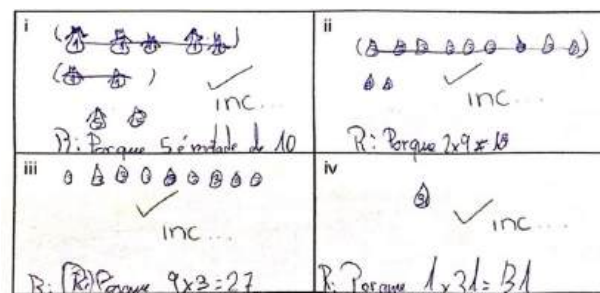 i
inc...
R: Porque 5 é metade de 10
ii
inc...
R: Porque 2x9=18
iii
inc...
R: (R:) Porque 9x3=27
iv
3
inc...
R: Porque 1x31=31